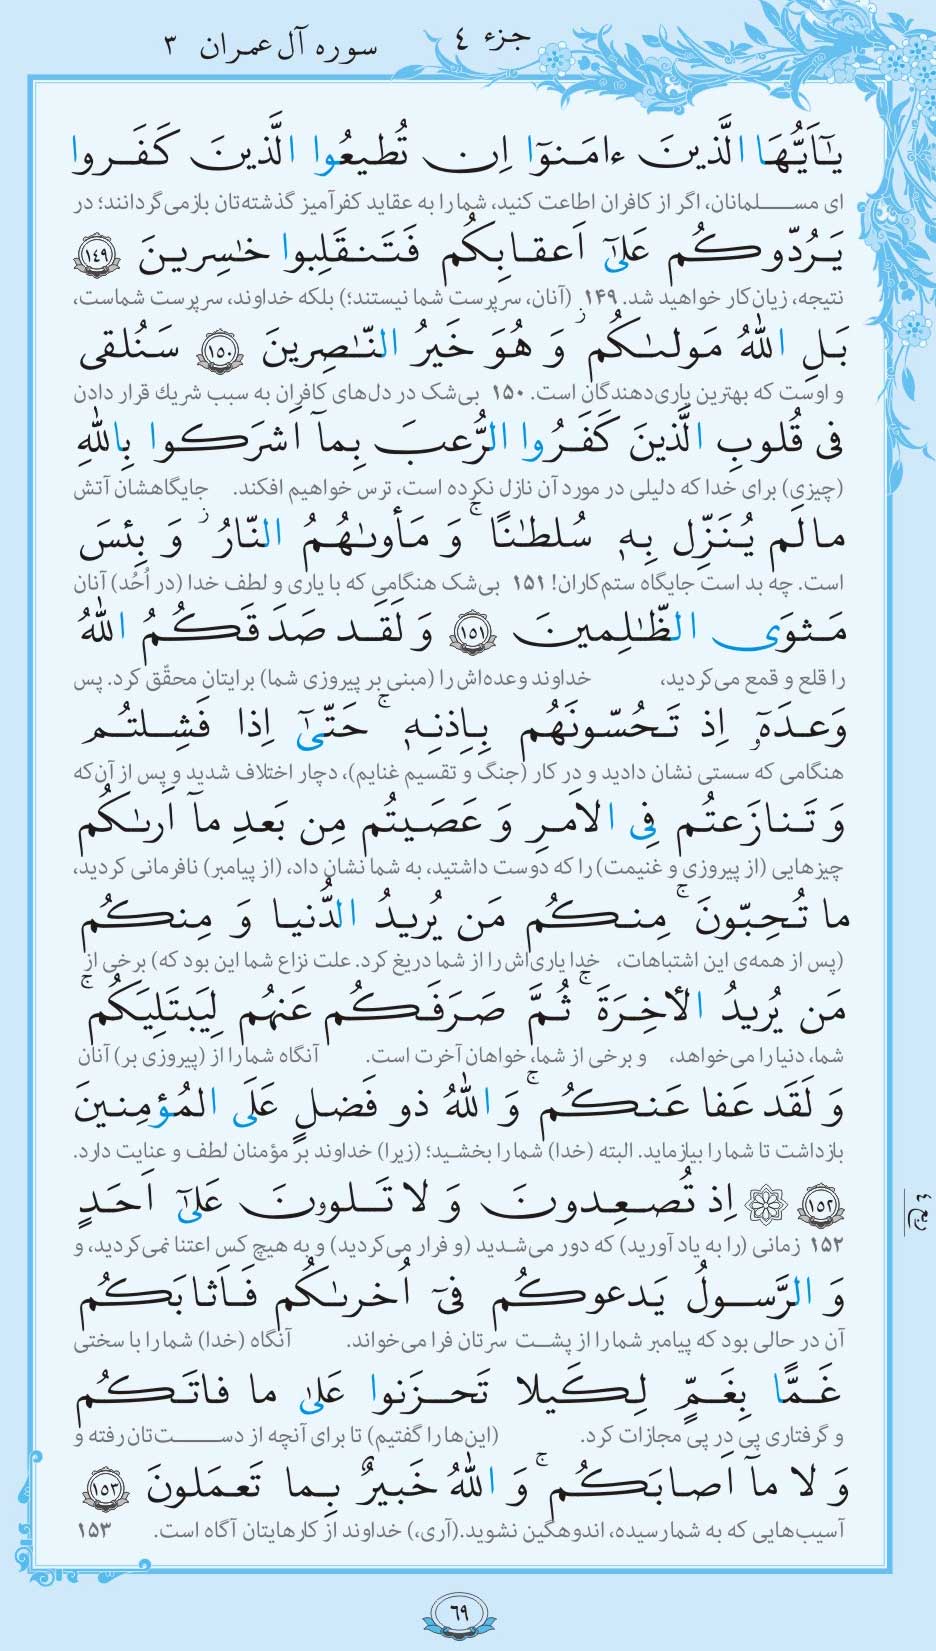 جزء ٤
سوره آل عمران ٣
يٰٓاَيُّهَا الَّذينَ ءامَنوٓا اِن تُطيعُوا الَّذينَ كَفَروا
ای مسلمانان، اگر از کافران اطاعت کنید، شما را به عقاید کفرآمیز گذشته‌تان بازمی‌گردانند؛ در
يَرُدّوكُم عَلىٰٓ اَعقابِكُم فَتَنقَلِبوا خٰسِرينَ ﴿١٤٩﴾
نتیجه، زیان‌کار خواهید شد. ۱۴۹ (آنان، سرپرست شما نیستند؛) بلکه خداوند، سرپرست شماست،
بَلِ اللهُ مَولىٰكُم ۖ وَ هُوَ خَيرُ النّٰصِرينَ ﴿١٥٠﴾ سَنُلقى
و اوست که بهترین یاری‌دهندگان است. ۱۵۰ بی‌شک در دل‌های کافران به سبب شریك قرار دادن
فى قُلوبِ الَّذينَ كَفَرُوا الرُّعبَ بِمآ اَشرَكوا بِاللهِ
(چیزی) برای خدا که دلیلی در مورد آن نازل نکرده است، ترس خواهیم افکند. جایگاهشان آتش
مالَم يُنَزِّل بِهٖ سُلطٰنًا ۚ وَ مَأوىٰهُمُ النّارُ ۖ وَ بِئسَ
است. چه بد است جایگاه ستم‌کاران! ۱۵۱ بی‌شک هنگامی که با یاری و لطف خدا (در اُحُد) آنان
مَثوَى الظّٰلِمينَ ﴿١٥١﴾ وَ لَقَد صَدَقَكُمُ اللهُ
را قلع و قمع می‌کردید، خداوند وعده‌اش را (مبنی بر پیروزی شما) برایتان محقّق کرد. پس
وَعدَهٗٓ اِذ تَحُسّونَهُم بِاِذنِهٖ ۚ حَتّىٰٓ اِذا فَشِلتُم
هنگامی که سستی نشان دادید و در کار (جنگ و تقسیم غنایم)، دچار اختلاف شدید و پس از آن‌که
وَ تَنازَعتُم فِى الاَمرِ وَ عَصَيتُم مِن بَعدِ مآ اَرىٰكُم
چیزهایی (از پیروزی و غنیمت) را که دوست داشتید، به شما نشان داد، (از پیامبر) نافرمانی کردید،
ما تُحِبّونَ ۚ مِنكُم مَن يُريدُ الدُّنيا وَ مِنكُم
(پس از همه‌ی این اشتباهات، خدا یاری‌اش را از شما دریغ کرد. علت نزاع شما این بود که) برخی از
مَن يُريدُ الأخِرَةَ ۚ ثُمَّ صَرَفَكُم عَنهُم لِيَبتَلِيَكُم ۚ
شما، دنیا را می‌خواهد، و برخی از شما، خواهان آخرت است. آنگاه شما را از (پیروزی بر) آنان
وَ لَقَد عَفا عَنكُم ۚ وَ اللهُ ذو فَضلٍ عَلَى المُؤمِنينَ
بازداشت تا شما را بیازماید. البته (خدا) شما را بخشید؛ (زیرا) خداوند بر مؤمنان لطف و عنایت دارد.
﴿١٥٢﴾ ۞ اِذ تُصعِدونَ وَ لا تَلوونَ عَلىٰٓ اَحَدٍ
۱۵۲ زمانی (را به یاد آورید) که دور می‌شدید (و فرار می‌کردید) و به هیچ کس اعتنا نمی‌کردید، و
ربع ٤
وَ الرَّسولُ يَدعوكُم فىٓ اُخرىٰكُم فَاَثابَكُم
آن در حالی بود که پیامبر شما را از پشت سرتان فرا می‌خواند. آنگاه (خدا) شما را با سختی
غَمًّا بِغَمٍّ لِكَيلا تَحزَنوا عَلىٰ ما فاتَكُم
و گرفتاری پی در پی مجازات کرد. (این‌ها را گفتیم) تا برای آنچه از دست‌تان رفته و
وَ لا مآ اَصابَكُم ۚ وَ اللهُ خَبيرٌ بِما تَعمَلونَ ﴿١٥٣﴾
آسیب‌هایی که به شما رسیده، اندوهگین نشوید.(آری،) خداوند از کارهایتان آگاه است. ۱۵۳
٦٩